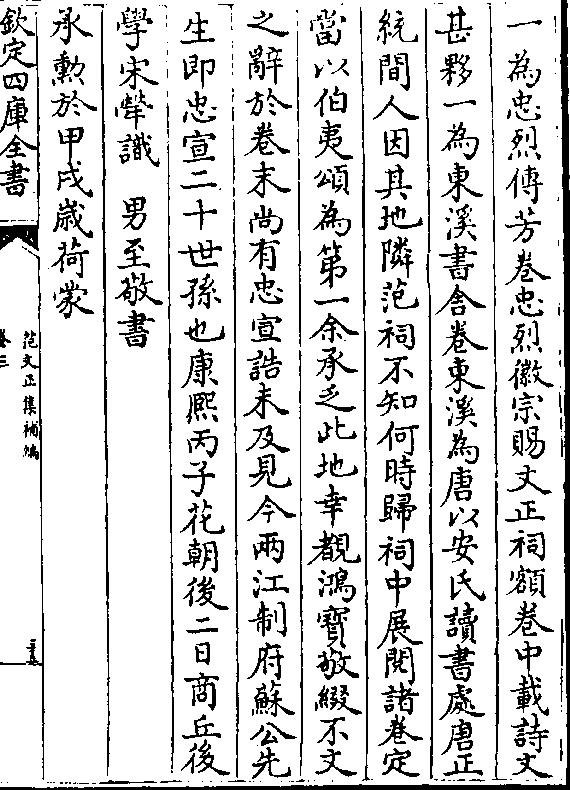 一為忠烈傳芳卷忠烈徽宗賜文正祠額卷中載詩文
甚夥一為東溪書舎卷東溪為唐以安氏讀書處唐正
統間人因其地隣范祠不知何時歸祠中展閱諸卷定
當以伯夷頌為第一余承乏此地幸覩鴻寳敬綴不文
之辭於卷末尚有忠宣誥未及見今兩江制府蘇公先
生即忠宣二十世孫也康熙丙子花朝後二日商丘後
學宋犖識　男至敬書
承勲於甲戌歲荷蒙
欽定四庫全書
范文正集補編
卷三